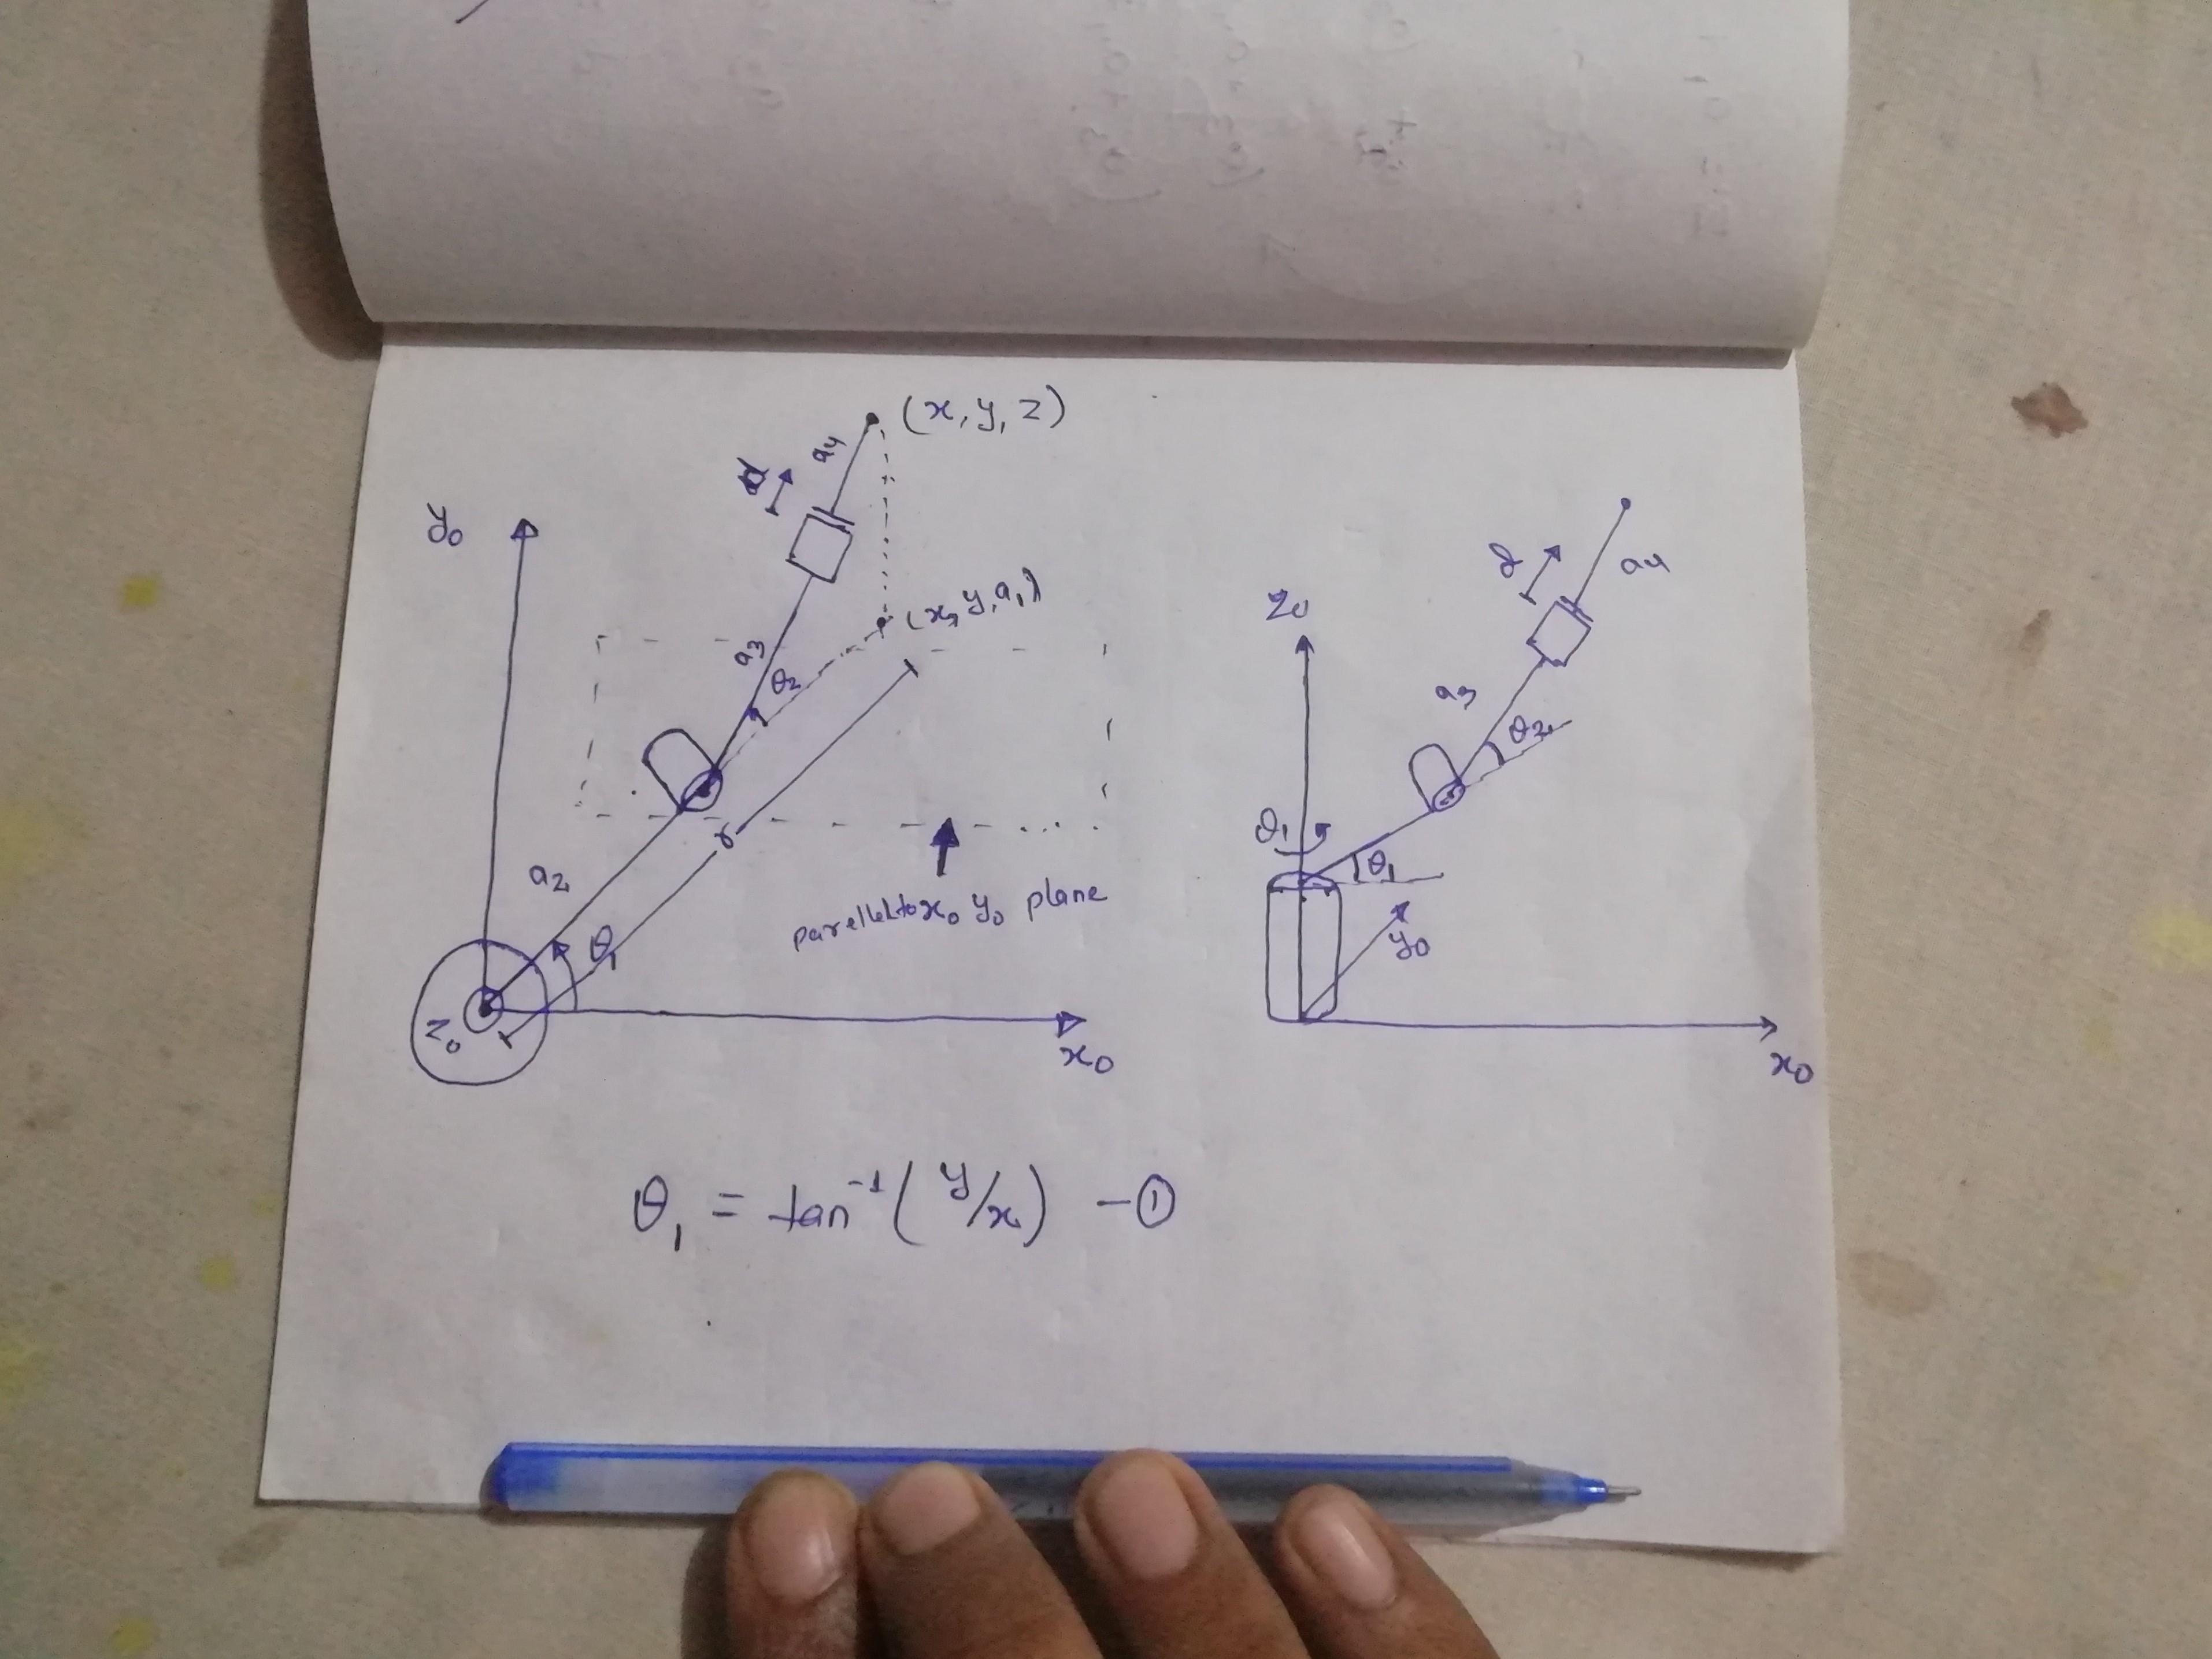 (x, y, z)
a4
d
y₀
(x, y, a₁)
a3
θ₂
r
a₂
parellel to x₀ y₀ plane
θ₁
z₀
x₀
d
a4
z₀
a3
θ₂
θ₁
θ₁
y₀
x₀
θ₁ = tan⁻¹(y/x) - ①